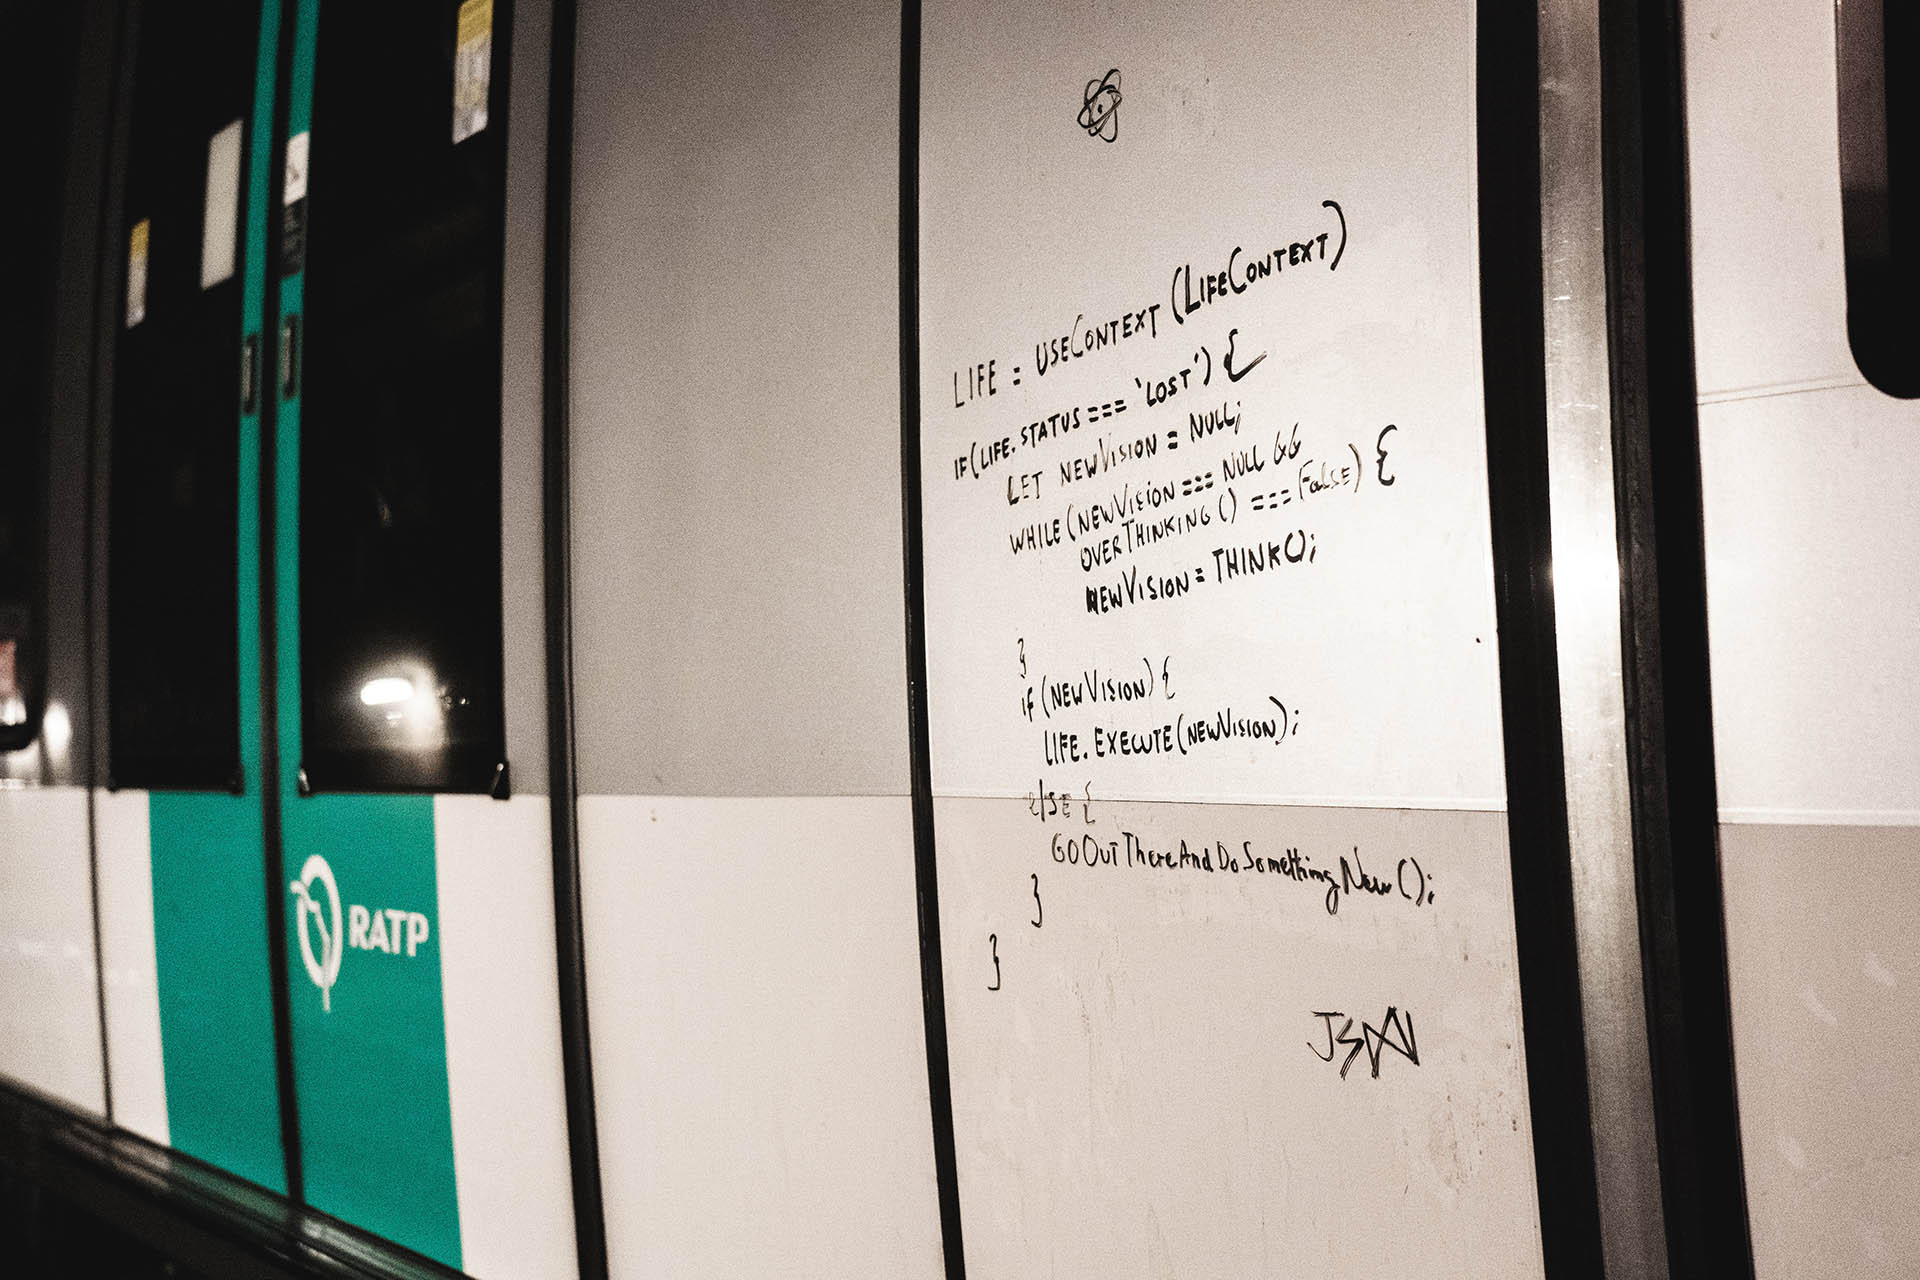 LIFE = USECONTEXT (LIFECONTEXT)
IF(LIFE.STATUS === 'LOST') {
LET NEWVISION = NULL;
WHILE (NEWVISION === NULL &&
OVERTHINKING() === FALSE) {
NEWVISION = THINK();
}
IF (NEWVISION) {
LIFE.EXECUTE(NEWVISION);
else {
GOOutThereAndDoSomethingNew();
}
}
RATP